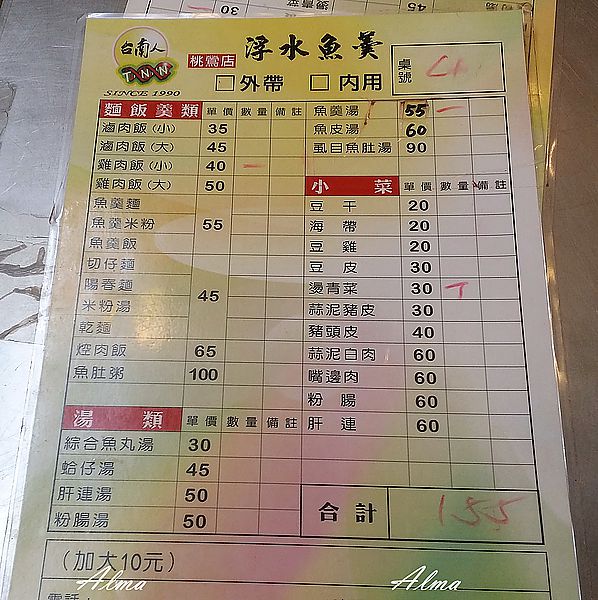 台南人
T.N.N
SINCE 1990
桃鶯店
浮水魚羹
□外帶 □內用
桌號
麵飯羹類 單價 數量 備註
滷肉飯(小) 35
滷肉飯(大) 45
雞肉飯(小) 40 一
雞肉飯(大) 50
魚羹麵
魚羹米粉 55
魚羹飯
切仔麵
陽春麵 45
米粉湯
乾麵
焢肉飯 65
魚肚粥 100
湯類 單價 數量 備註
綜合魚丸湯 30
蛤仔湯 45
肝連湯 50
粉腸湯 50
魚羹湯 55 一
魚皮湯 60
虱目魚肚湯 90
小菜 單價 數量 備註
豆干 20
海帶 20
豆雞 20
豆皮 30
燙青菜 30 T
蒜泥豬皮 30
豬頭皮 40
蒜泥白肉 60
嘴邊肉 60
粉腸 60
肝連 60
合計 155
(加大10元)
電話:
Alma Alma